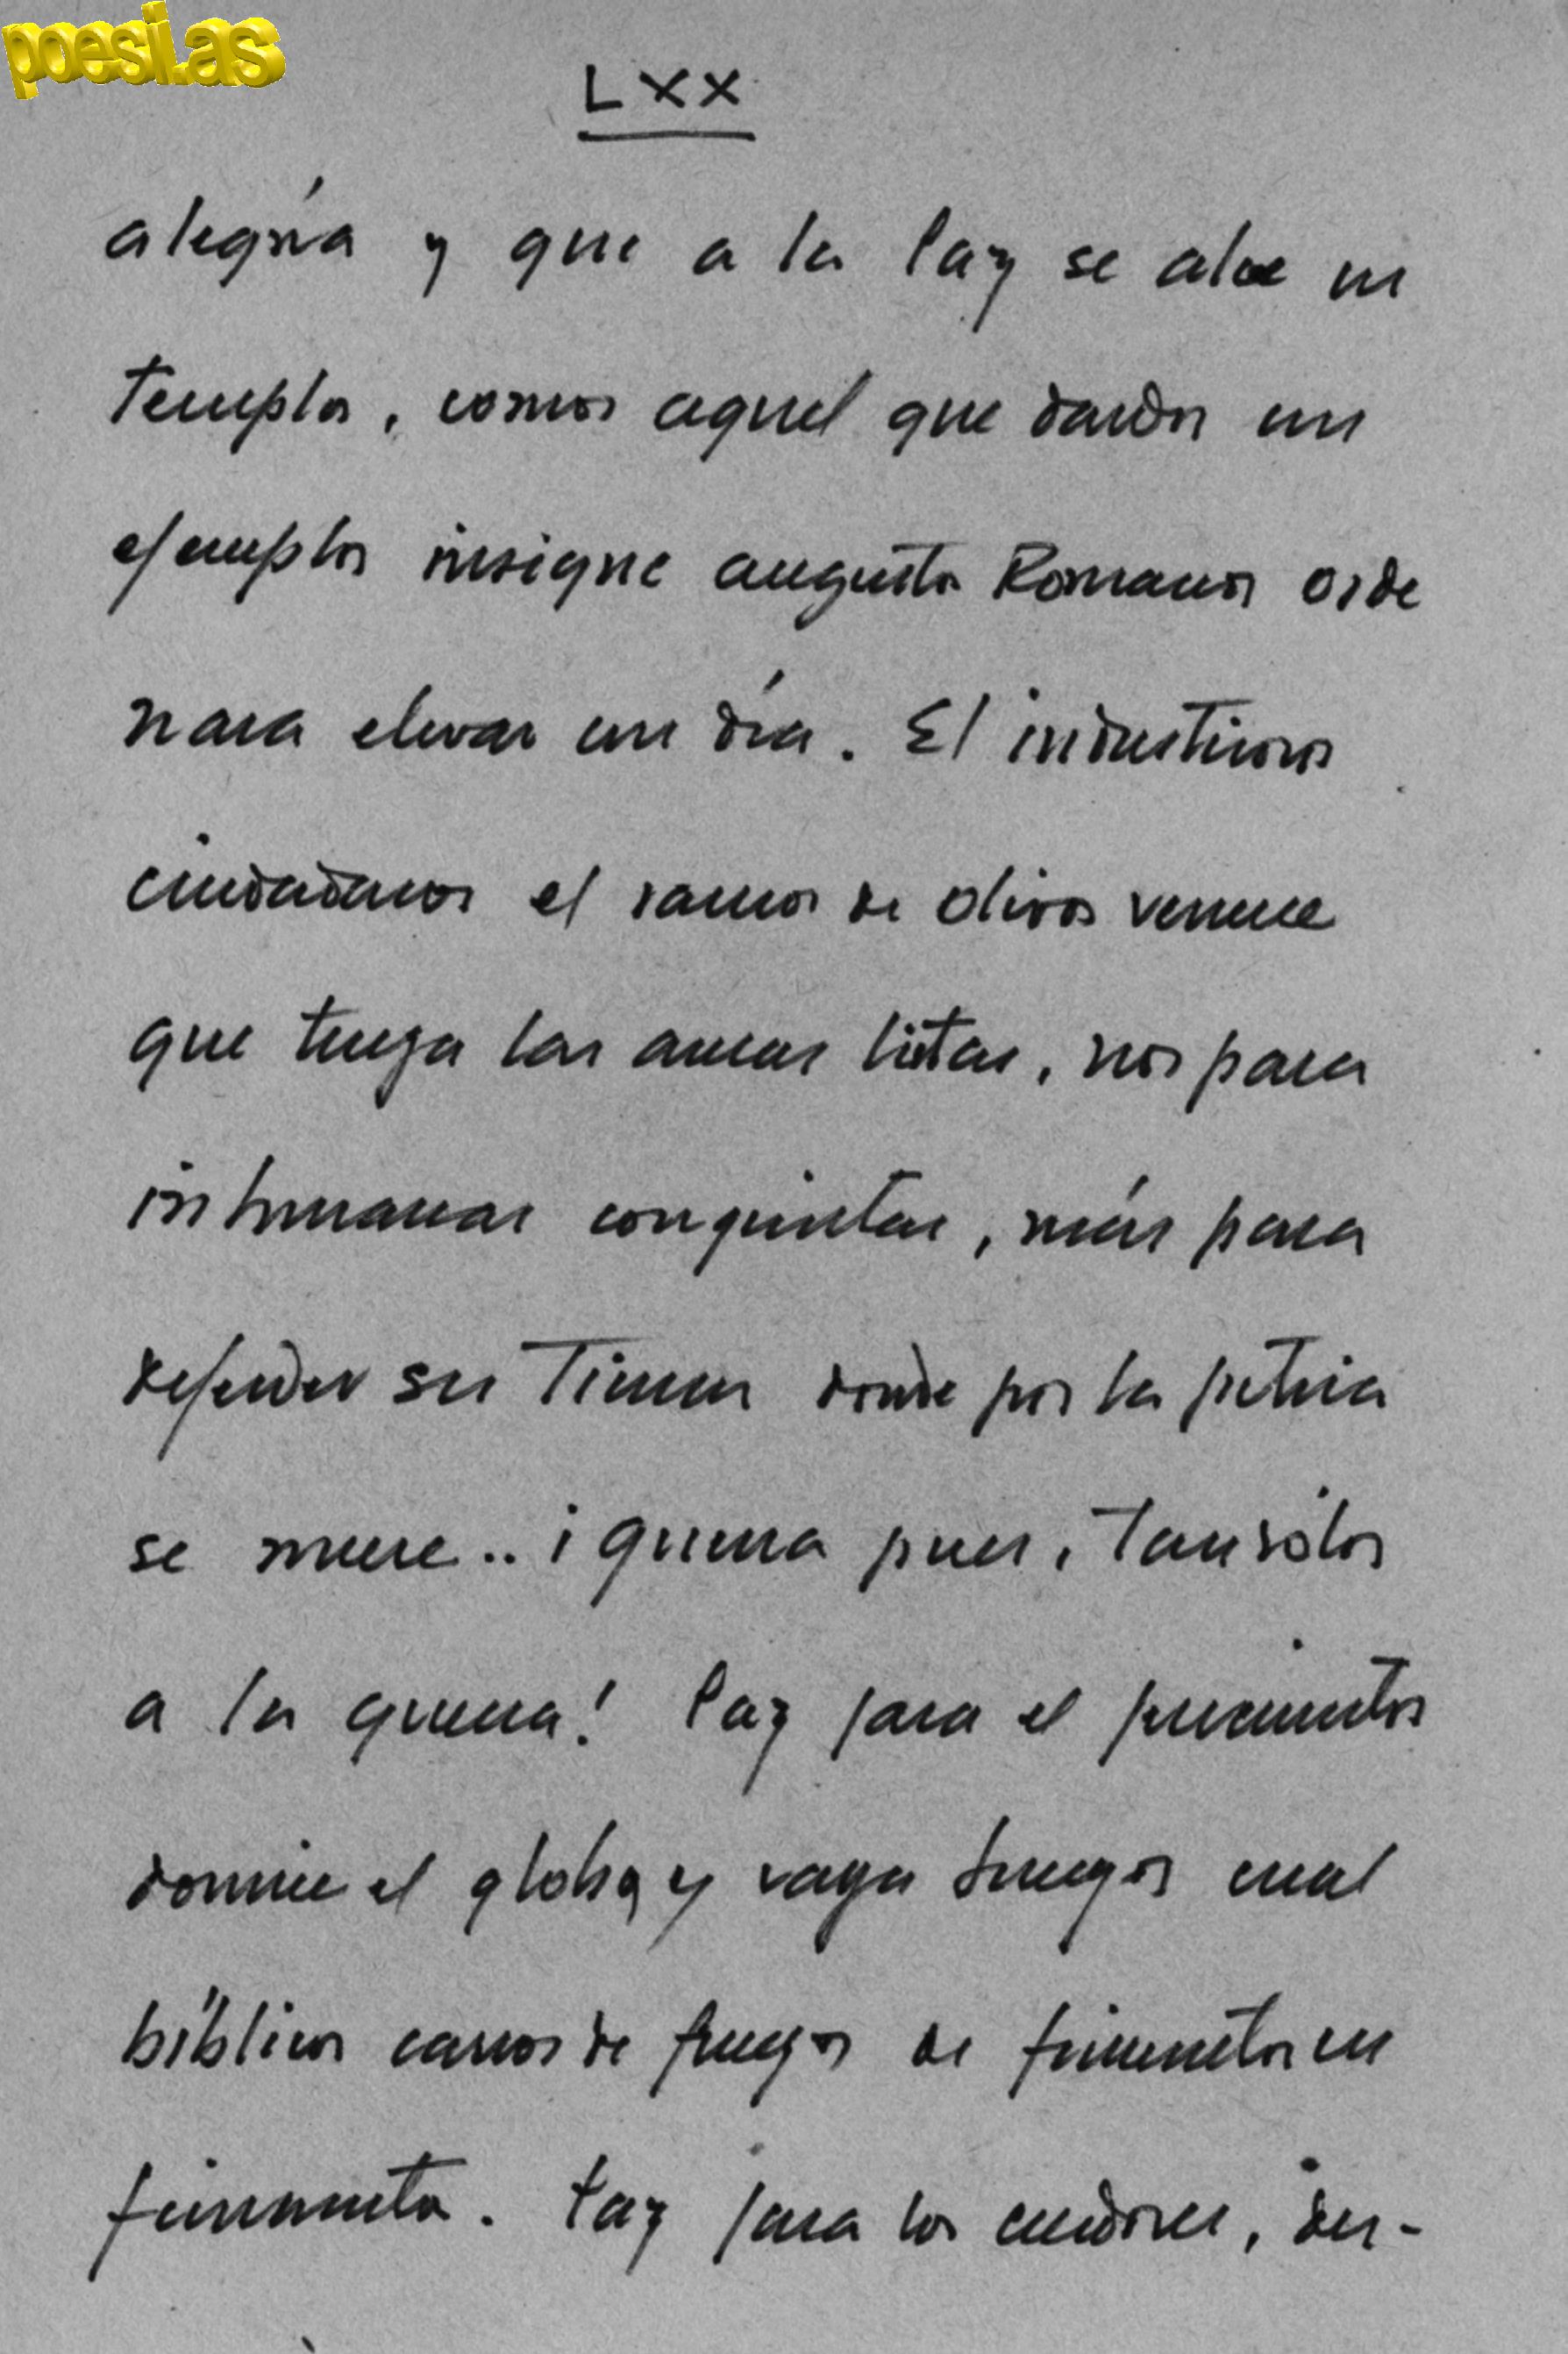 poesi.as
LXX
alegría y que a la Paz se alce un
templo, como aquel que dando un
ejemplo insigne augusto Romano orde
nara elevar un día. El industrioso
ciudadano el ramo de olivo venere
que tenga las armas listas, no para
inhumanas conquistas, más para
defender su tierra donde por la patria
se muere.. ¡guerra pues, tan sólo
a la guerra! Paz para el pensamiento
domine el globo, y vaya luego cual
bíblico carro de fuego de firmamento en
firmamento. Paz para los creadores, des-